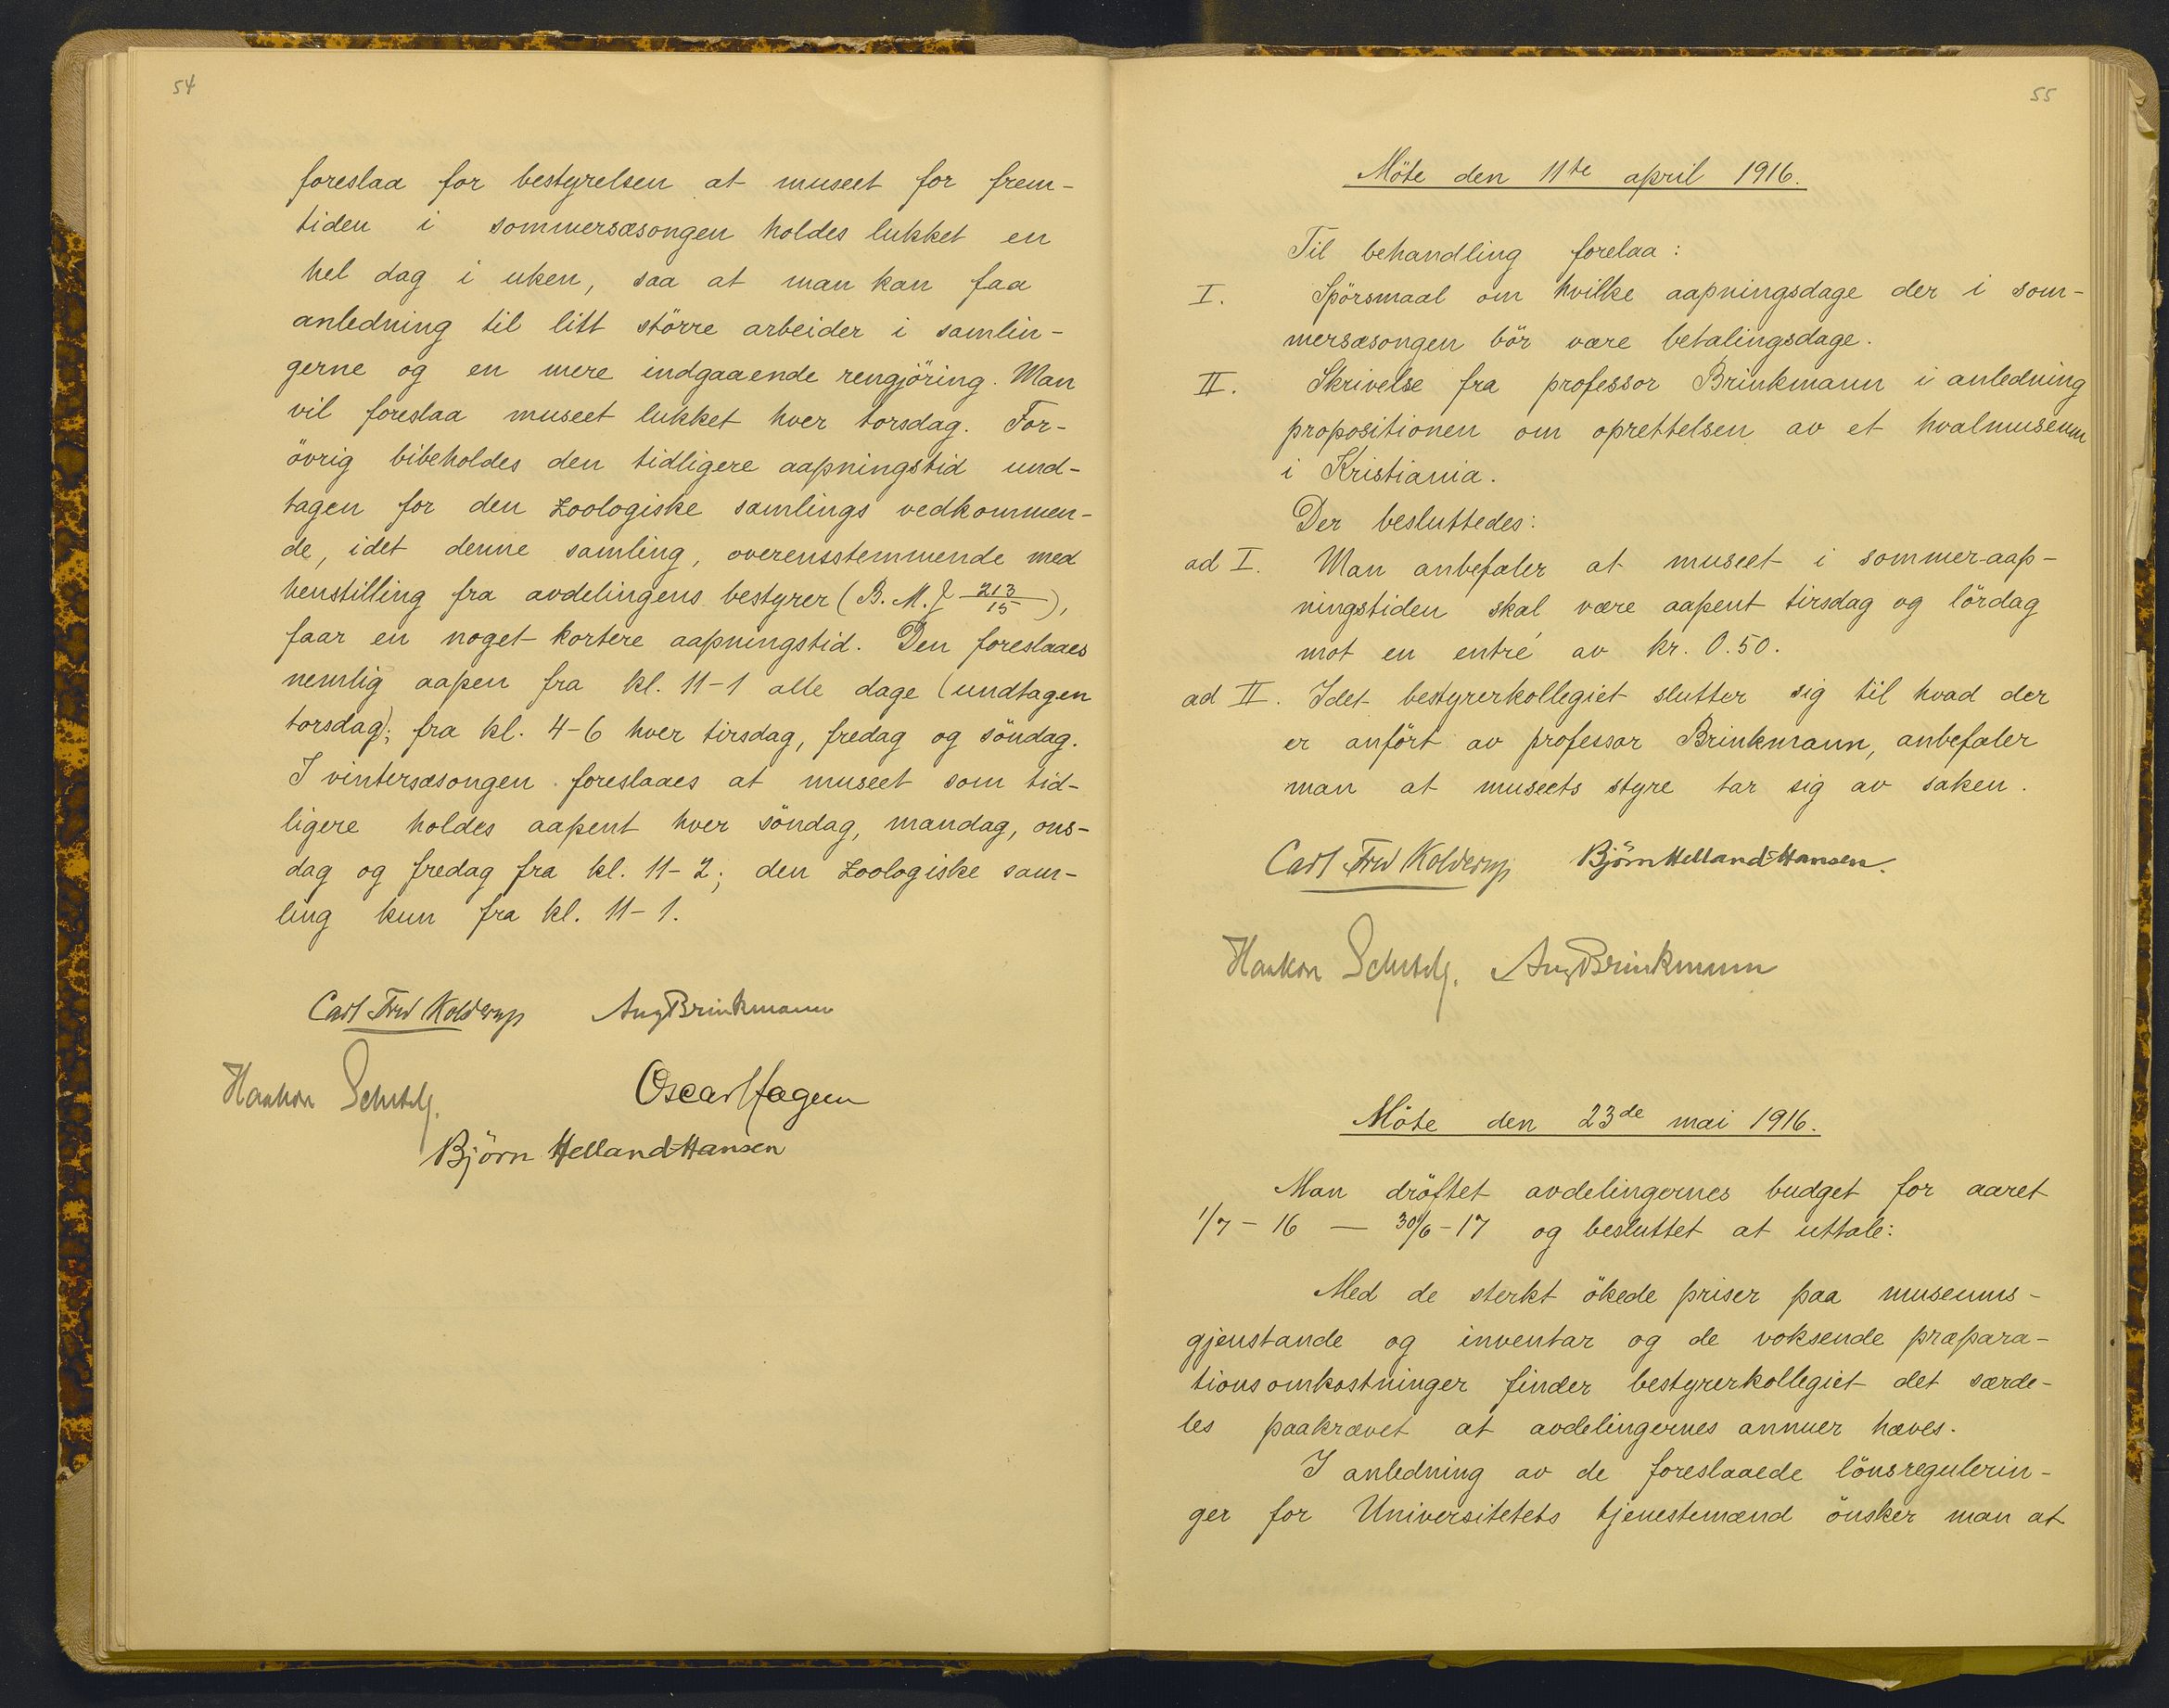 54
foreslaa for bestyrelsen at museet for frem-
tiden i sommersæsongen holdes lukket en
hel dag i uken, saa at man kan faa
anledning til litt större arbeider i samlin-
gerne og en mere indgaaende rengjöring. Man
vil foreslaa museet lukket hver torsdag. For-
övrig bibeholdes den tidligere aapningstid und-
tagen for den zoologiske samlings vedkommen-
de, idet denne samling, overensstemmende med
henstilling fra avdelingens bestyrer (B. M. J 213/15),
faar en noget kortere aapningstid. Den foreslaaes
nemlig aapen fra kl. 11-1 alle dage (undtagen
torsdag); fra kl. 4-6 hver tirsdag, fredag og söndag.
I vintersæsongen foreslaaes at museet som tid-
ligere holdes aapent hver söndag, mandag, ons-
dag og fredag fra kl. 11-2; den zoologiske sam-
ling kun fra kl. 11-1.
Carl Fred Kolderup Aug Brinkmann
Haakon Schetelig. Oscar Hagem
Björn Helland-Hansen
55
Möte den 11te april 1916.
Til behandling forelaa:
I. Spörsmaal om hvilke aapningsdage der i som-
mersæsongen bör være betalingsdage.
II. Skrivelse fra professor Brinkmann i anledning
propositionen om oprettelsen av et hvalmuseum
i Kristiania.
Der besluttedes:
ad I. Man anbefaler at museet i sommer-aap-
ningstiden skal være aapent tirsdag og lördag
mot en entré av kr. 0.50.
ad II. Idet bestyrerkollegiet slutter sig til hvad der
er anfört av professor Brinkmann, anbefaler
man at museets styre tar sig av saken.
Carl Fred Kolderup Björn Helland-Hansen.
Haakon Schetelig. Aug Brinkmann
Möte den 23de mai 1916.
Man dröftet avdelingernes budget for aaret
1/7 - 16 — 30/6 - 17 og besluttet at uttale:
Med de sterkt ökede priser paa museums-
gjenstande og inventar og de voksende præpara-
tionsomkostninger finder bestyrerkollegiet det særde-
les paakrævet at avdelingernes annuer hæves.
I anledning av de foreslaaede lönsregulerin-
ger for Universitetets tjenestemænd önsker man at